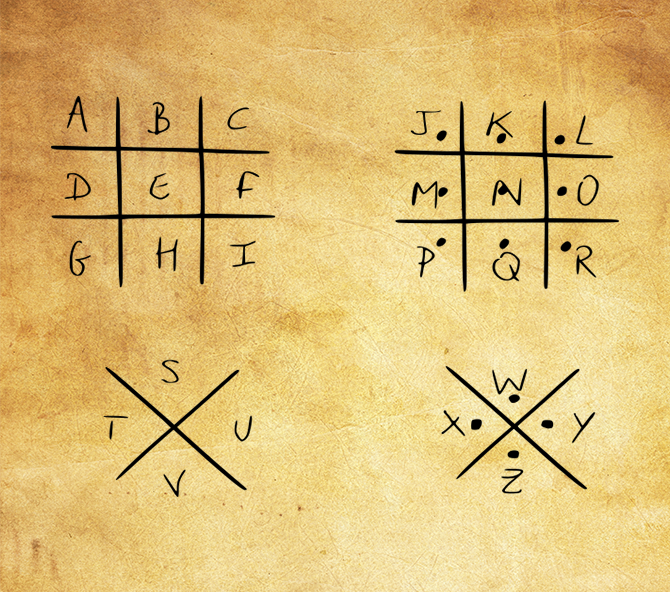 A B C
D E F
G H I
J K L
M N O
P Q R
S
T U
V
W
X Y
Z